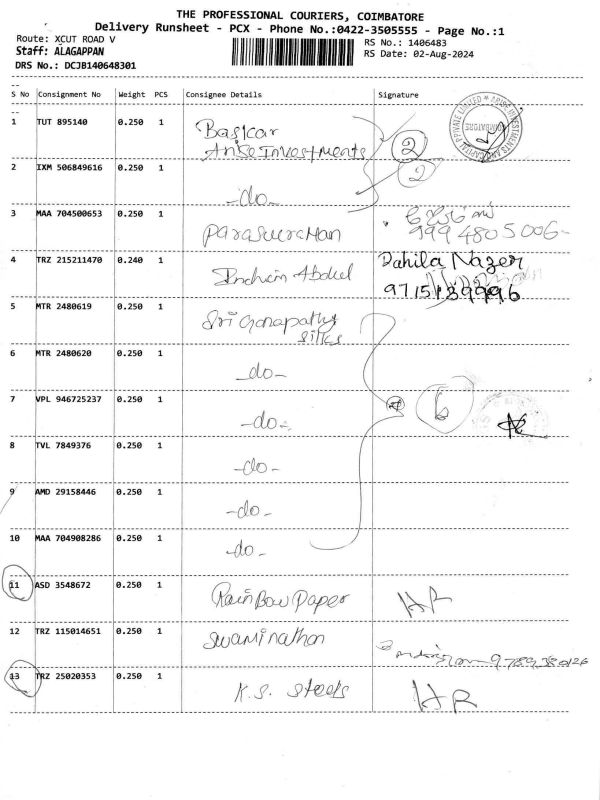 THE PROFESSIONAL COURIERS, COIMBATORE
Delivery Runsheet - PCX - Phone No.:0422-3505555 - Page No.:1
Route: XCUT ROAD V
RS No.: 1406483
Staff: ALAGAPPAN
RS Date: 02-Aug-2024
DRS No.: DCJB140648301
S No Consignment No Weight PCS Consignee Details Signature
1 TUT 895140 0.250 1 Baskar
Arise Investments 2
ARISE INVESTMENTS AND CAPITAL PRIVATE LIMITED
COIMBATORE
2 IXM 506849616 0.250 1 -do- 2
3 MAA 704500653 0.250 1 Parasuraman
9994805006-
4 TRZ 215211470 0.240 1 Abdul Dahila Nazer
9715139996
5 MTR 2480619 0.250 1 Sri Ganapathy
Silks
6 MTR 2480620 0.250 1 -do-
7 VPL 946725237 0.250 1 -do- 6
8 TVL 7849376 0.250 1 -do-
9 AMD 29158446 0.250 1 -do-
10 MAA 704908286 0.250 1 -do-
11 ASD 3548672 0.250 1 Rainbow Paper HR
12 TRZ 115014651 0.250 1 Swaminathan 9789380126
13 TRZ 25020353 0.250 1 K.S. Steels HR